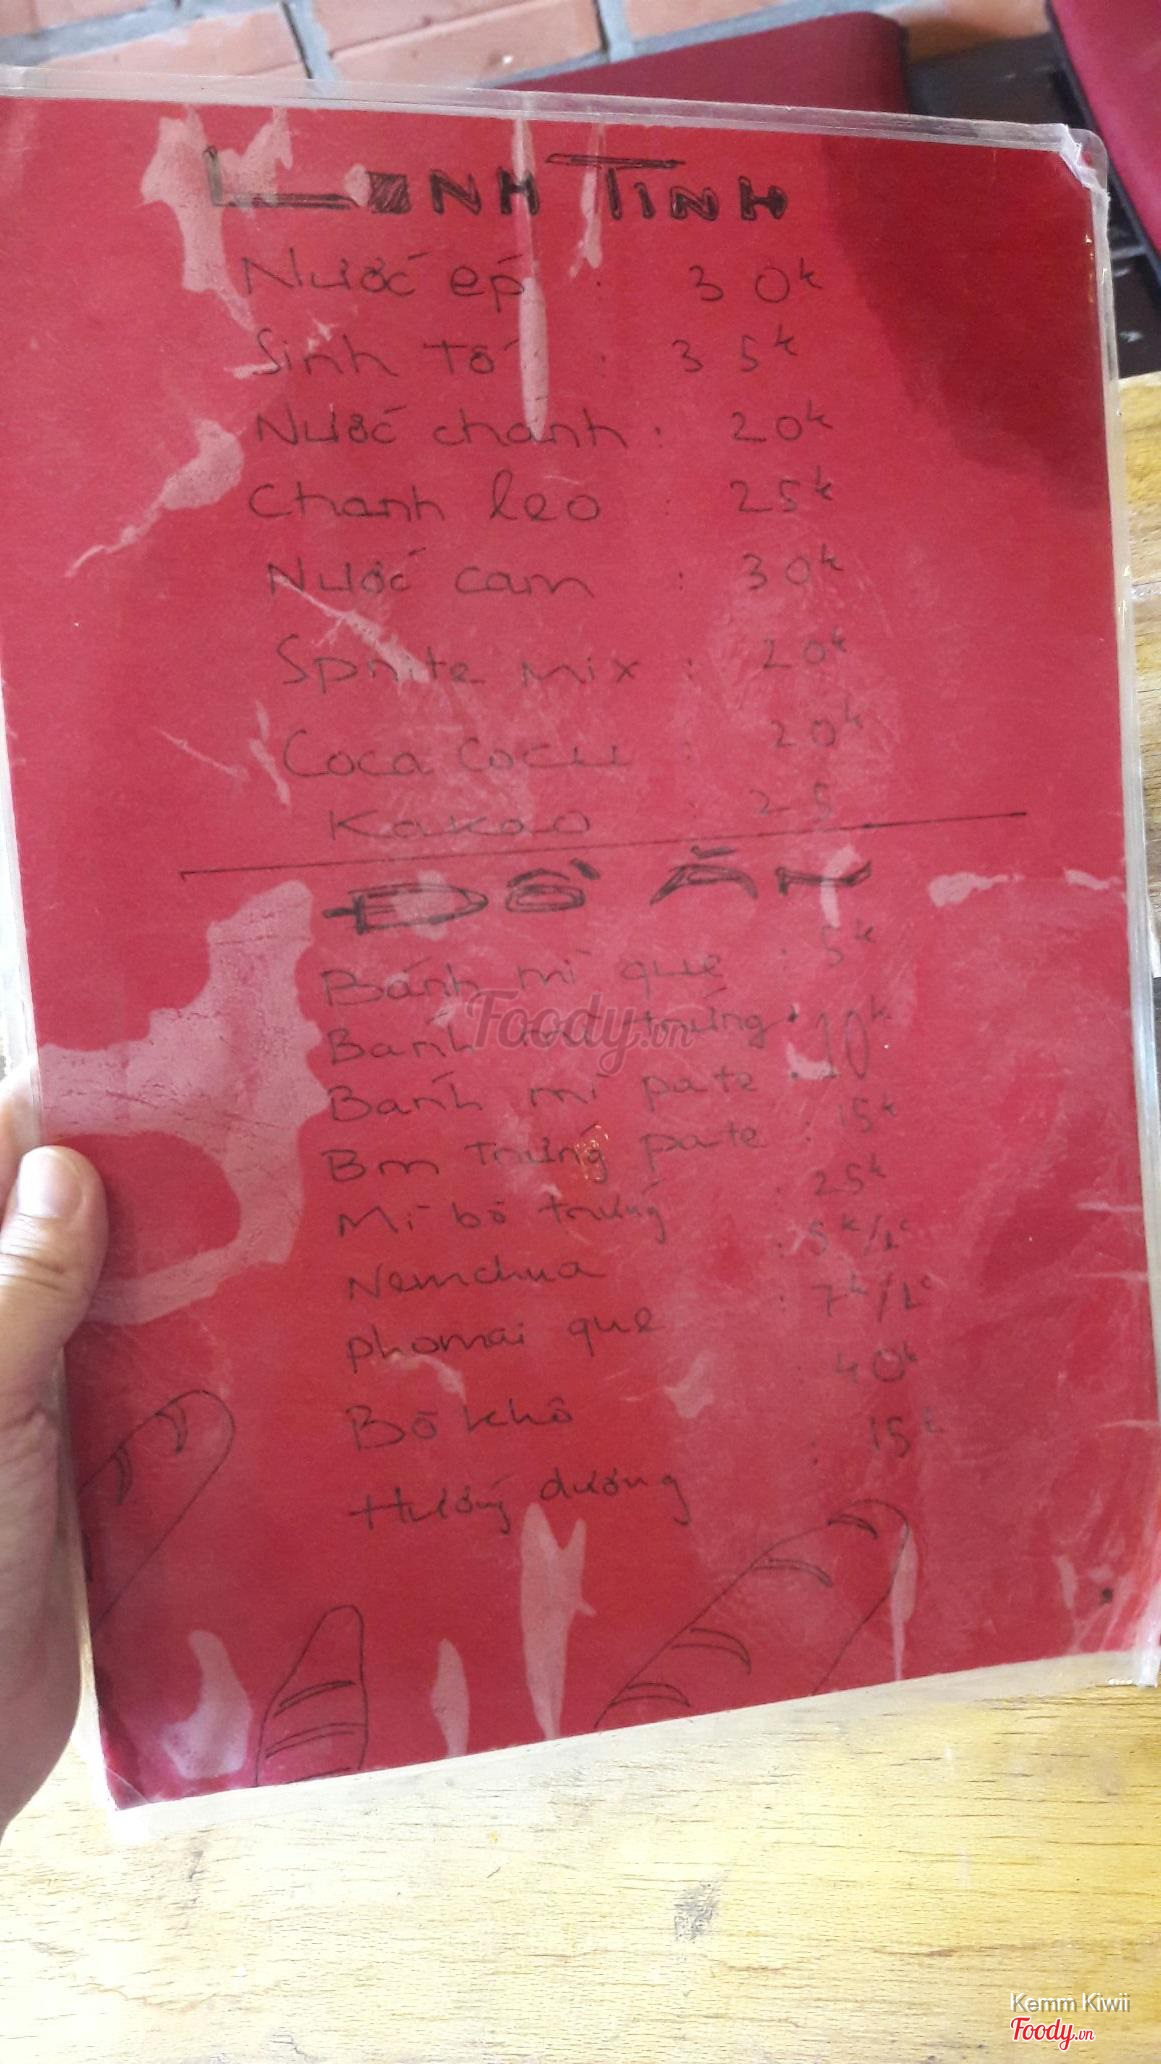 LINH TINH
Nước ép : 30k
Sinh tố : 35k
Nước chanh : 20k
Chanh leo : 25k
Nước cam : 30k
Sprite mix : 20k
Coca : 20k
Kakao : 25
ĐỒ ĂN
Bánh mì que : 5k
Bánh mì trứng : 10k
Bánh mì pate
Bm trứng pate : 15k
Mì bò trứng : 25k
Nemchua : 5k/1c
phomai que : 7k/1c
Bò khô : 40k
Hướng dương : 15k
Foody.vn
Kemm Kiwii
Foody.vn